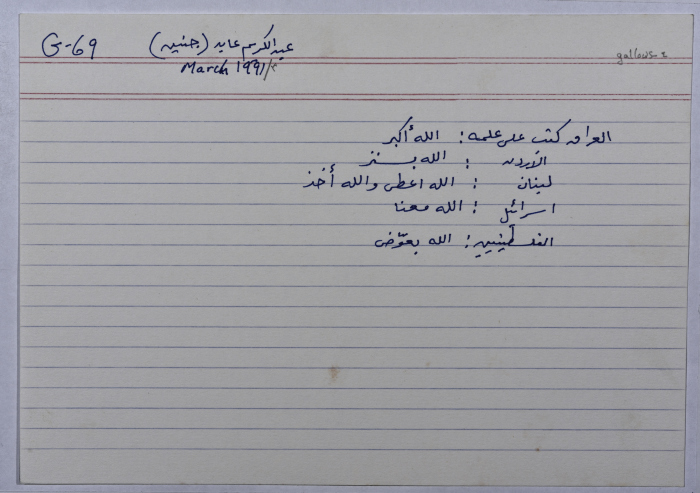 G-69
عبد الكريم عابد (جنين)
March 1991/
gallows-2
العراق كتب على علمه : الله أكبر
الأردن : الله يستر
لبنان : الله اعطى والله أخذ
اسرائيل : الله معنا
الفلسطينيين : الله بعوّض